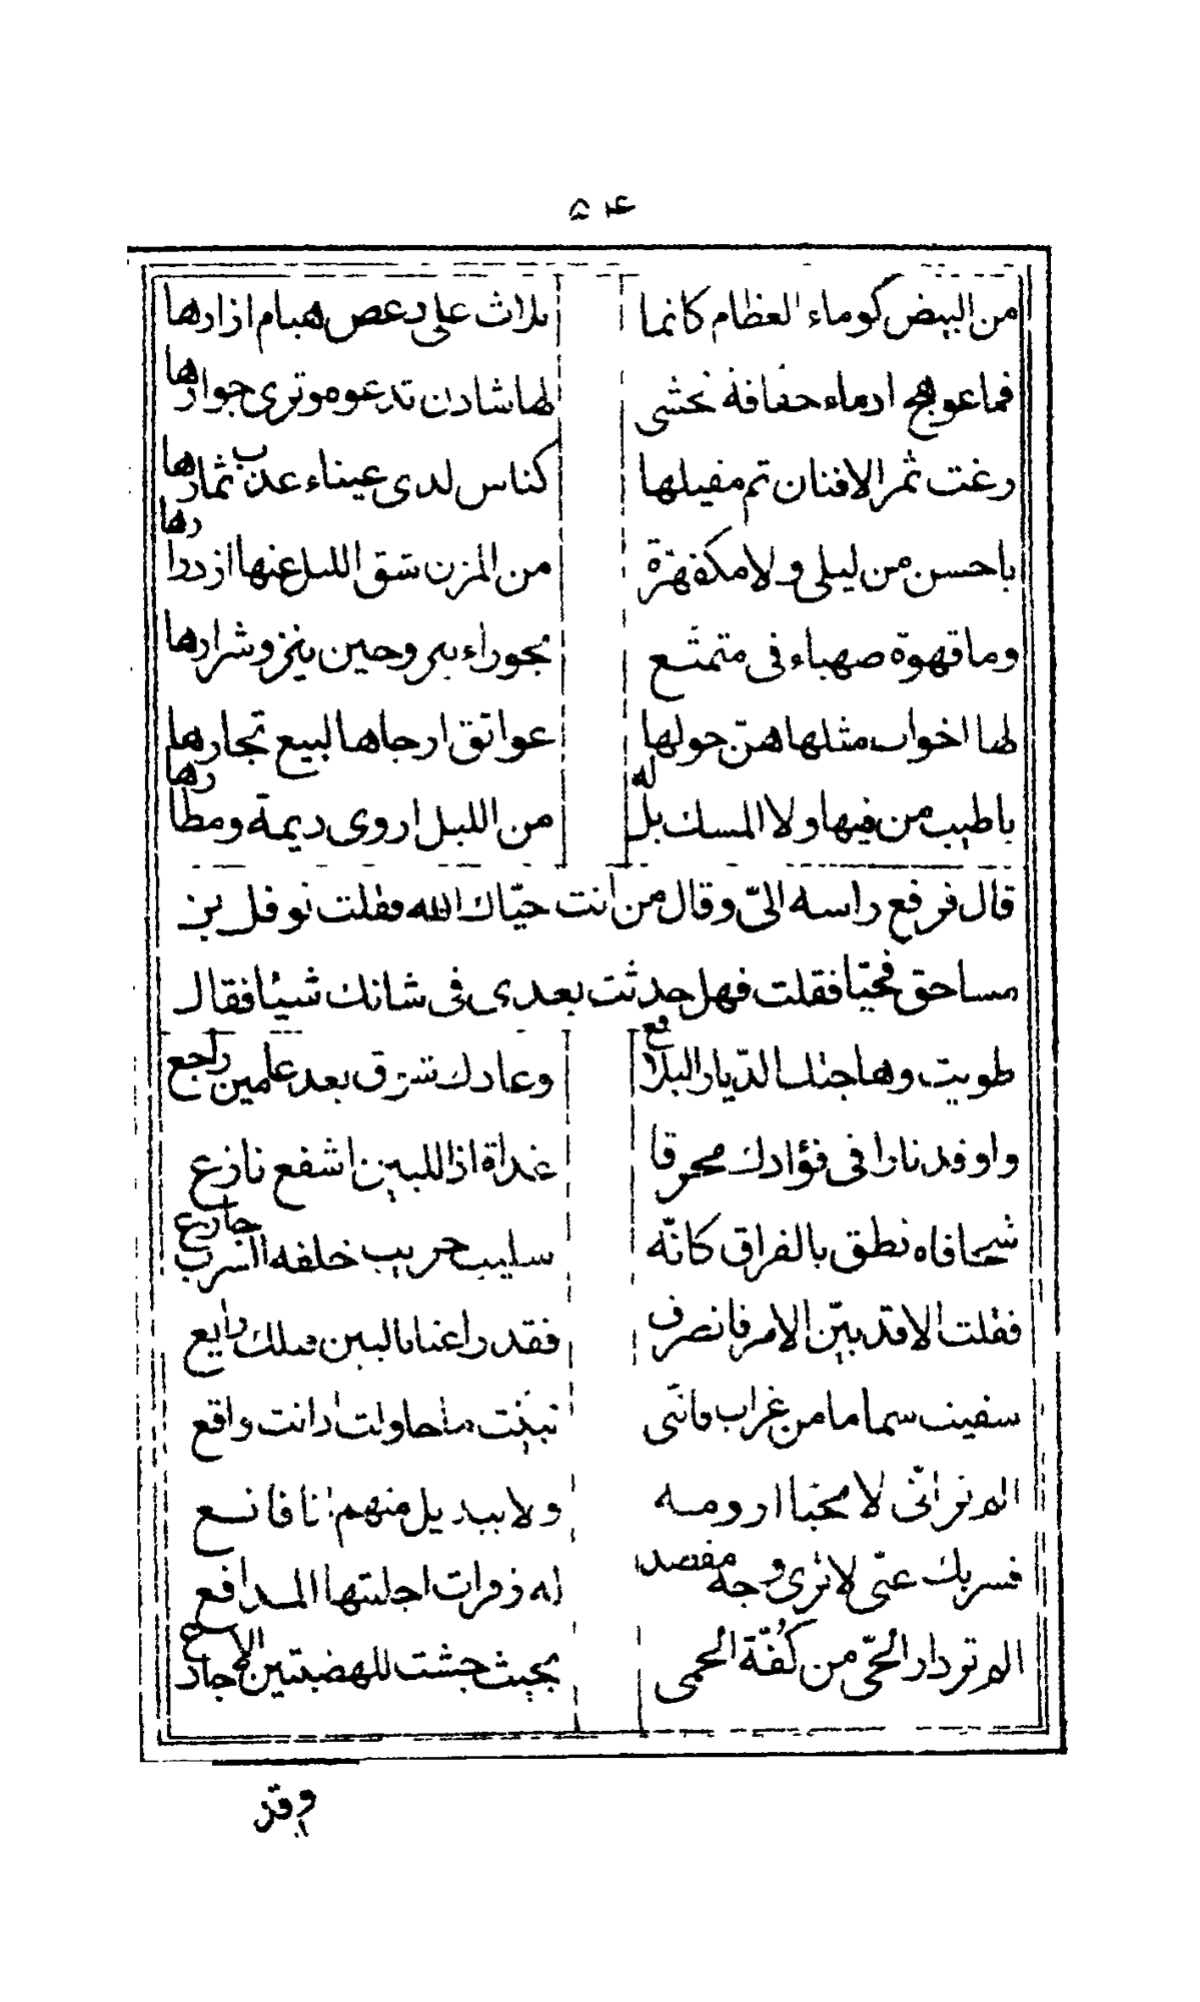 ۵۴
من البيض كوماء العظام كانما يلاث على دعص هيام ازارها
فما عوهج ادماء خفافة تخشى لها شادن تدعوه وترى جوارها
رغت ثمر الافنان ثم مقيلها كناس لدى عيناء عذب ثمارها
باحسن من ليلى ولا مكفهرة من المزن شق الليل عنها ازدرارها
وما قهوة صهباء فى متمتع بحوراء يىر وحين ينزو شرارها
لها اخوات مثلها هنّ حولها عواتق ارجاها لبيع تجارها
باطيب من فيها ولا المسك بلّله من الليل اروى ديمة ومطارها
قال فرفع راسه الىّ وقال من انت حيّاك الله فقلت نوفل بن
مساحق فحيّا فقلت فهل حدثت بعدى فى شانك شيئا فقال
طويت وهاجتك الدّيار البلاقع وعادك شزق بعد علمين راجع
واوقد نارا فى فؤادك محرقا غداة اذ اللبين اشفع نازع
شحافاه نطق بالفراق كانّه سليب حريب خلفه السرب جازع
فقلت الا قد بيّن الامر فانصرف فقد راعنا بالبين قبلك رايع
سقيت سماما من غراب فانّنى تبيّنت ما حاولت اذ انت واقع
الم تر انّى لا محبّا ارومه ولا ببديل منهم انا قانع
فسربك عنّى لا ترى وجه مقصد له زفرات اجلبتها المدافع
الم تر دار الحىّ من كُفّة الحمى بحيث جشت للهضبتين الاجارع
وقد